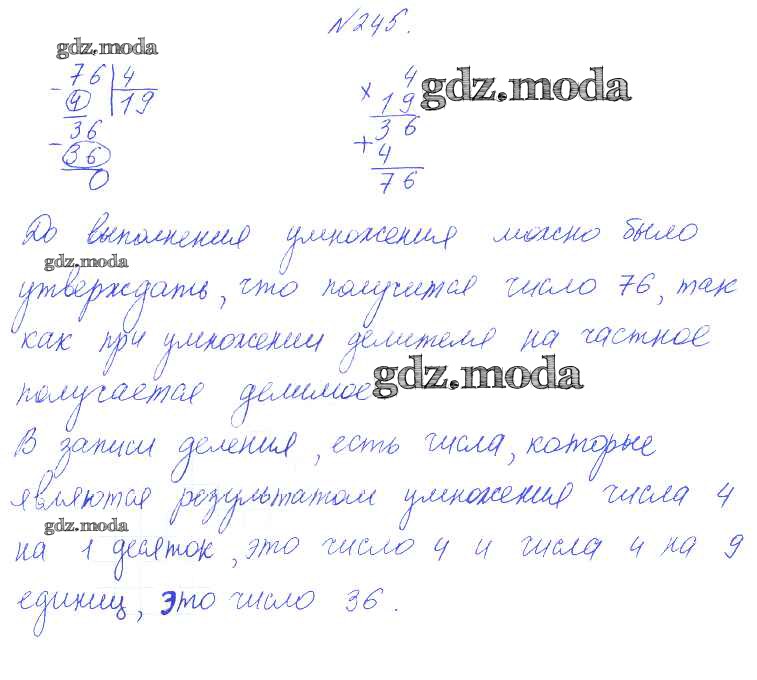 №245.
gdz.moda
76 | 4
- 4 | 19
36
- 36
0
4
× 19
gdz.moda
36
+ 4
76
До выполнения умножения можно было
gdz.moda
утверждать, что получится число 76, так
как при умножении делителя на частное
получается делимое
gdz.moda
В записи деления, есть числа, которые
являются результатом умножения числа 4
gdz.moda
на 1 десяток, это число 4 и числа 4 на 9
единиц, это число 36.